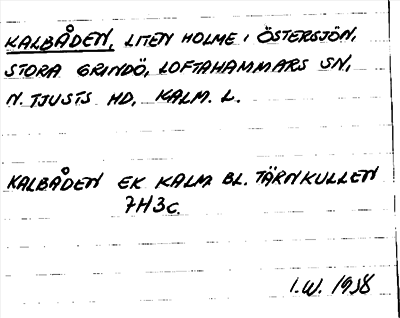 KALBÅDEN, LITEN HOLME I ÖSTERSJÖN,
STORA GRINDÖ, LOFTAHAMMARS SN,
N. TJUSTS HD, KALM. L.
KALBÅDEN EK KALM BL. TÄRNKULLEN
7H3c.
I.W.